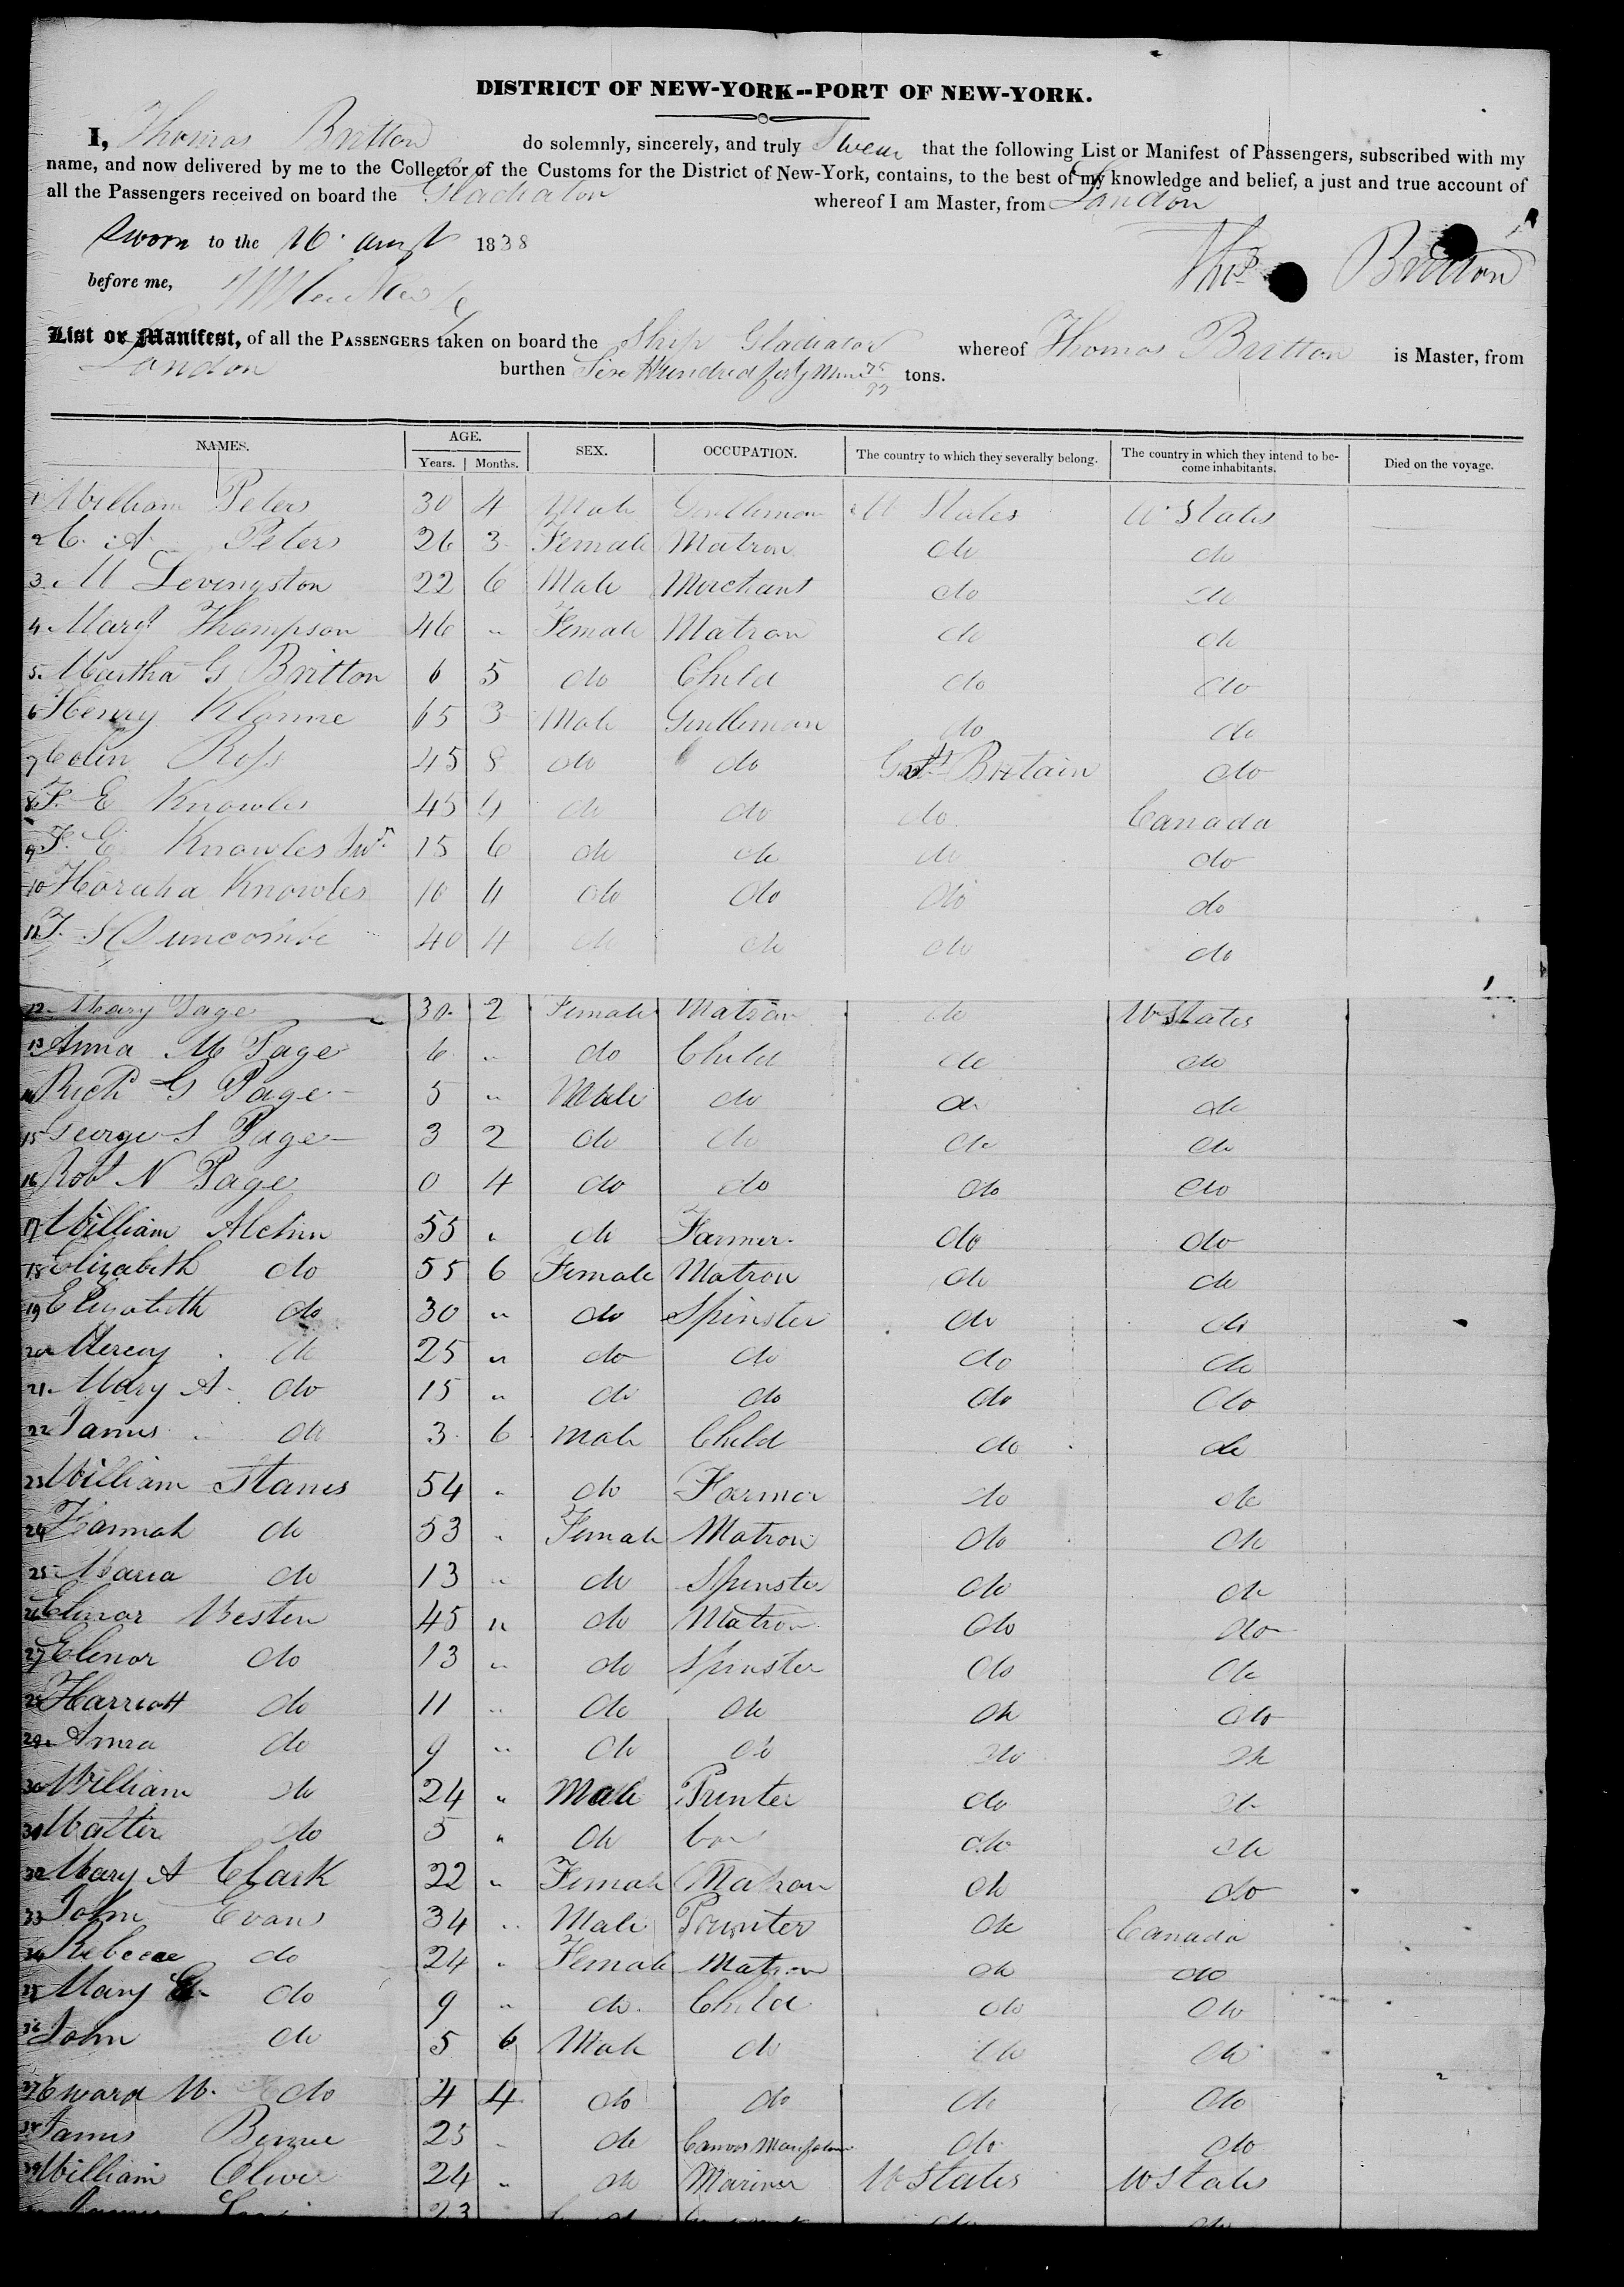 DISTRICT OF NEW-YORK--PORT OF NEW-YORK.
I, Thomas Britton do solemnly, sincerely, and truly Swear that the following List or Manifest of Passengers, subscribed with my
name, and now delivered by me to the Collector of the Customs for the District of New-York, contains, to the best of my knowledge and belief, a just and true account of
all the Passengers received on board the Gladiator whereof I am Master, from London
Sworn to the 16 augst 1838
Thos Britton
before me,
List or Manifest, of all the PASSENGERS taken on board the Ship Gladiator whereof Thomas Britton is Master, from
London burthen Six Hundred forty Nine 75/95 tons.
NAMES. AGE. SEX. OCCUPATION. The country to which they severally belong. The country in which they intend to be- Died on the voyage.
Years. Months. come inhabitants.
1 William Peters 30 4 Male Gentleman U States U States
2 C. A Peters 26 3 Female Matron do do
3 M Levingston 22 6 Male Merchant do do
4 Margt Thompson 46 " Female Matron do do
5 Martha G Britton 6 5 do Child do do
6 Henry 65 3 Male Gentleman do do
7 Colin Ross 45 8 do do Grt Britain do
8 F. E Knowles 45 4 do do do Canada
9 F. E Knowles Junr 15 6 do do do do
10 Horatia Knowles 10 4 do do do do
11 T. S Duncombe 40 4 do do do do
12 Mary Page 30 2 Female Matron do U States
13 Anna M Page 6 " do Child do do
14 Richd G Page 5 " Male do do do
15 George S Page 3 2 do do do do
16 Robt N Page 0 4 do do do do
17 William Alchin 55 " do Farmer do do
18 Elizabeth do 55 6 Female Matron do do
19 Elizabeth do 30 " do Spinster do do
20 Mercy do 25 " do do do do
21 Mary A. do 15 " do do do do
22 James do 3 6 male Child do do
23 William Stanes 54 " do Farmer do do
24 Hannah do 53 " Female Matron do do
25 Maria do 13 " do Spinster do do
26 Elinor Westen 45 " do Matron do do
27 Elenor do 13 " do Spinster do do
28 Harriott do 11 " do do do do
29 do 9 " do do do do
30 William do 24 " Male Printer do do
31 Walter do 5 " do do do
32 Mary A Clark 22 " Female Matron do do
33 John Evans 34 " Male do Canada
34 Rebecca do 24 " Female Matron do do
35 Mary do 9 " do Child do do
36 John do 5 6 Male do do do
37 Edward W. do 4 4 do do do do
38 James 25 " do Canvas do do
39 William Oliver 24 " do Mariner U States U States
23 do do